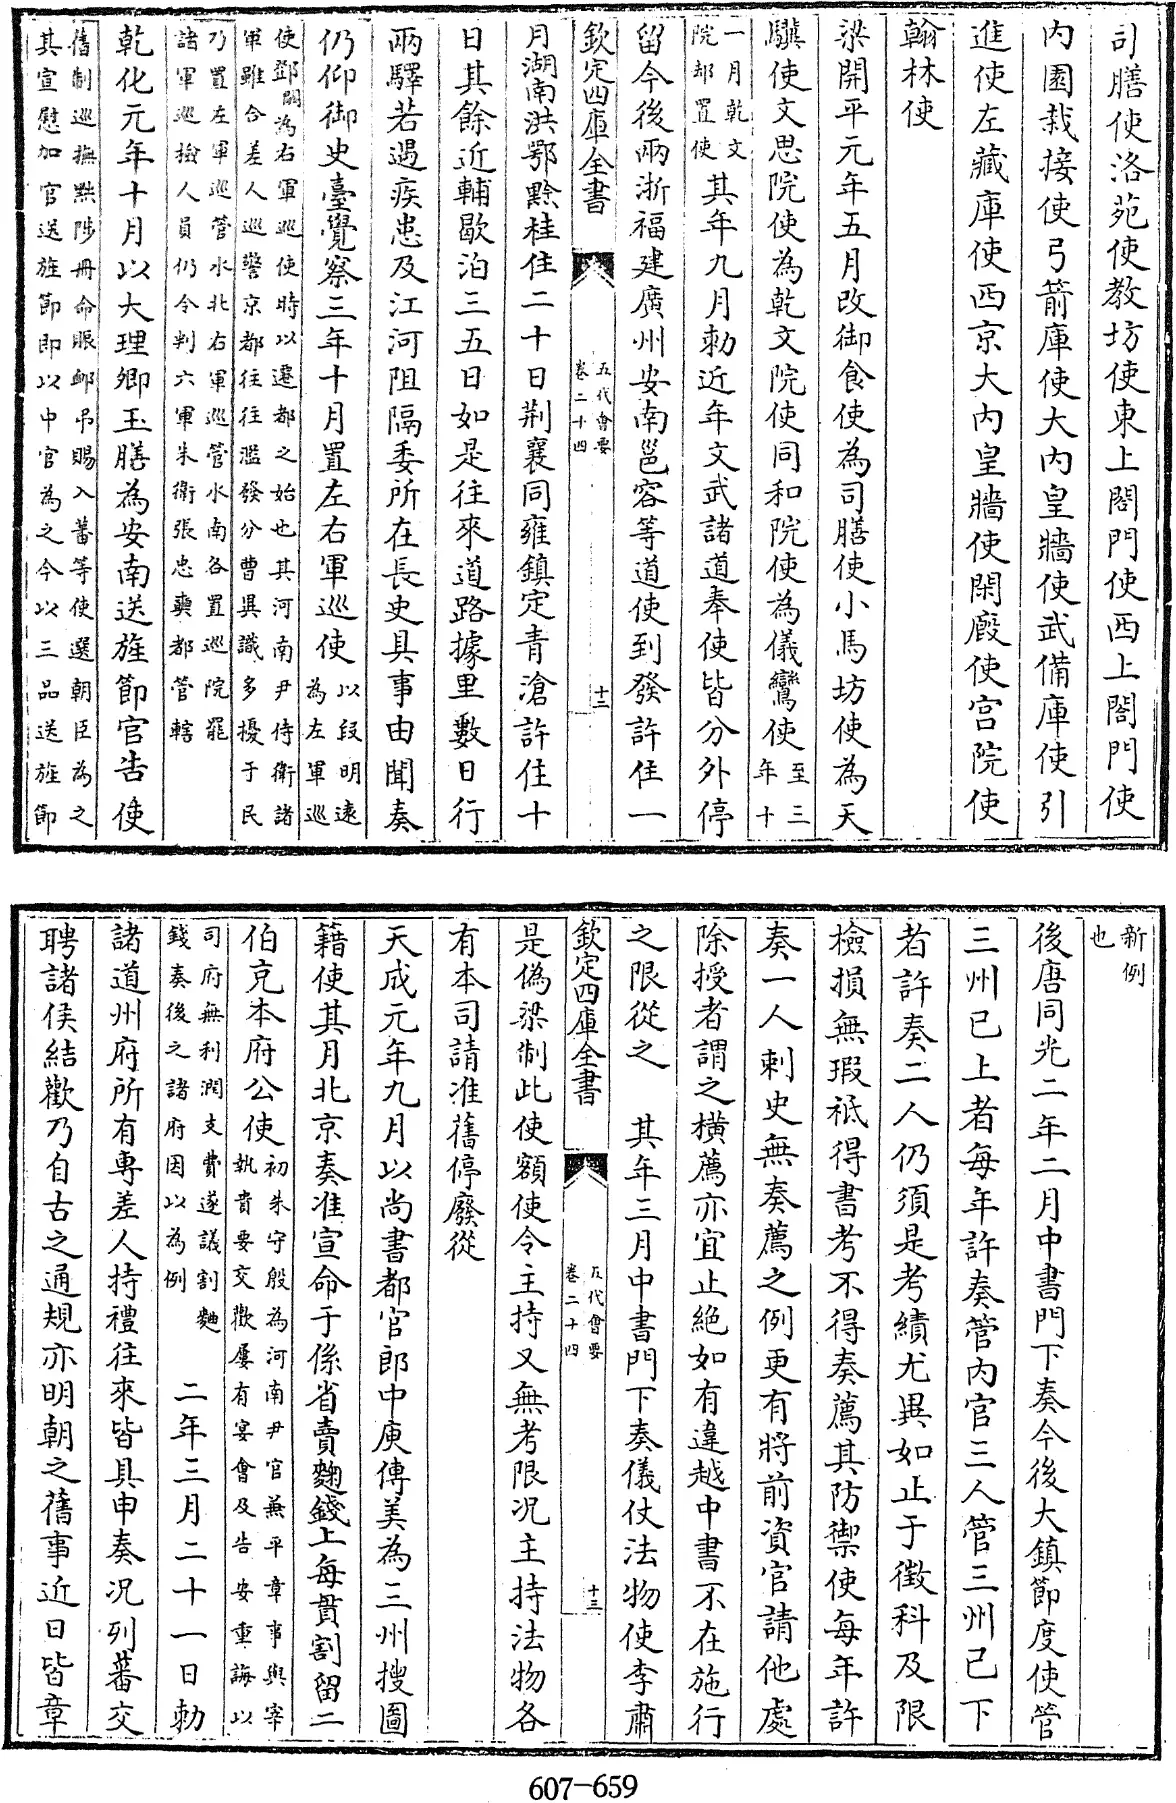 司膳使洛苑使教坊使東上閤門使西上閤門使
内園栽接使弓箭庫使大内皇牆使武備庫使引
進使左藏庫使西京大内皇牆使閑廐使宫院使
翰林使
梁開平元年五月改御食使為司膳使小馬坊使為天
驥使文思院使為乾文院使同和院使為儀鸞使至三年十
一月乾文院却置使其年九月勅近年文武諸道奉使皆分外停
留今後兩浙福建廣州安南邕容等道使到發許住一
欽定四庫全書
五代會要
卷二十四
十三
月湖南洪鄂黔桂住二十日荆襄同雍鎮定青滄許住十
日其餘近輔歇泊三五日如是往來道路據里數日行
兩驛若遇疾患及江河阻隔委所在長吏具事由聞奏
仍仰御史臺覺察三年十月置左右軍巡使以段明遠為左軍巡
使鄧闢為右軍巡使時以遷都之始也其河南尹侍衛諸
軍雖合差人巡警京都往往濫發分曹異識多擾于民
乃置左軍巡管水北右軍巡管水南各置巡院罷
諸軍巡檢人員仍令判六軍朱衛張忠奭都管轄
乾化元年十月以大理卿王膳為安南送旌節官告使
舊制巡撫黜陟冊命賑䘏弔賜入蕃等使選朝臣為之
其宣慰加官送旌節即以中官為之今以三品送旌節
新例
也
後唐同光二年二月中書門下奏今後大鎮節度使管
三州已上者每年許奏管内官三人管三州已下
者許奏二人仍須是考績尤異如止于徵科及限
檢損無瑕祗得書考不得奏薦其防禦使每年許
奏一人刺史無奏薦之例更有將前資官請他處
除授者謂之横薦亦宜止絶如有違越中書不在施行
之限從之 其年三月中書門下奏儀仗法物使李肅
欽定四庫全書
五代會要
卷二十四
十三
是偽梁制此使額使令主持又無考限况主持法物各
有本司請准舊停廢從
天成元年九月以尚書都官郎中庾傳美為三州搜圖
籍使其月北京奏准宣命于係省賣麴錢上每貫割留二
伯克本府公使初朱守殷為河南尹官兼平章事與宰
執貴要交歡屢有宴會及告安重誨以
司府無利潤支費遂議割麴
錢奏後之諸府因以為例 二年三月二十一日勅
諸道州府所有專差人持禮往來皆具申奏况列蕃交
聘諸侯結歡乃自古之通規亦明朝之舊事近日皆章
607-659